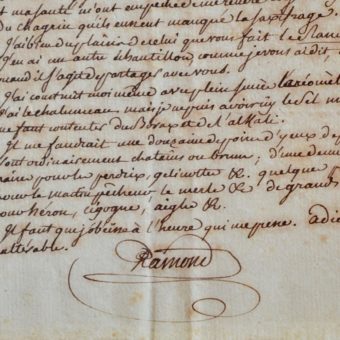 et ma santé m'ont empêché
du chagrin qu'ils eussent manqué la saxifrage.
J'ai bien du plaisir de celui que vous fait le
J'en ai un autre échantillon, comme je vous ai dit,
quand il s'agit de partager avec vous.
J'ai construit moi même avec plein succès
J'ai le chalumeau mais je ne puis avoir ni le Sel
me faut contenter du Borax et de l'alkali.
Il me faudrait une douzaine de paires d'yeux de
sont ordinairement chatains ou bruns; d'une demi
pour les perdrix, gelinottes &c. quelque
pour le martin pêcheur le merle &c. de grands
pour héron, cigogne, aigle &c.
Il faut que j'obéisse à l'heure qui me presse. adie
Ramond